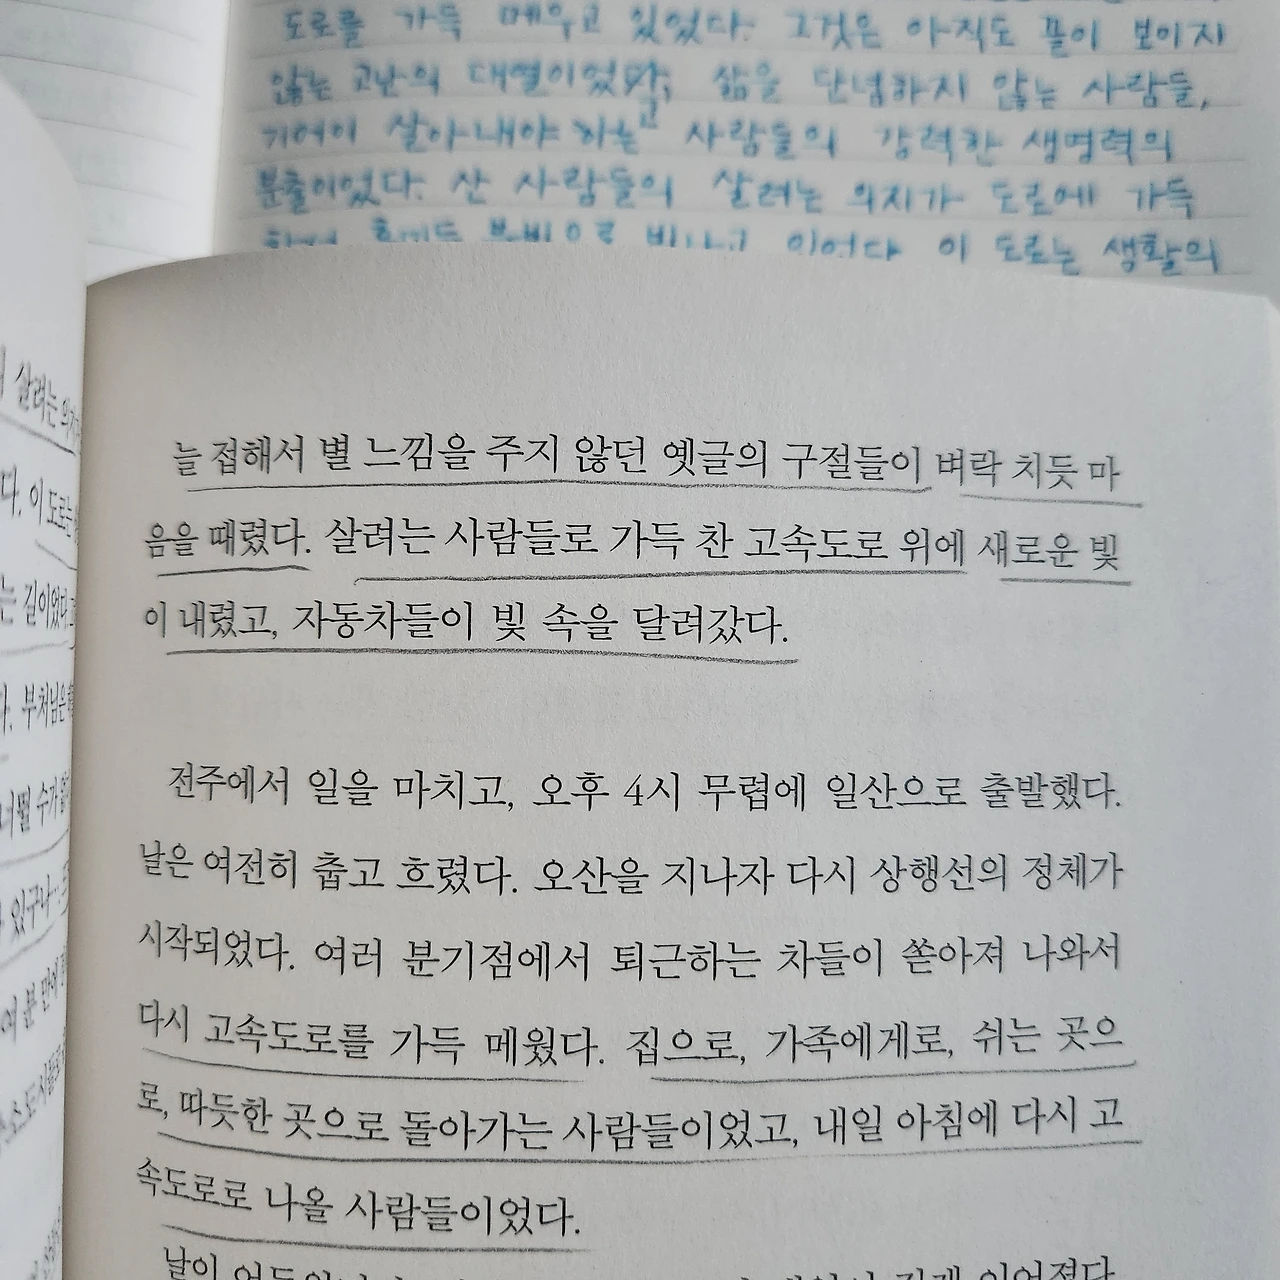 도로를 가득 메우고 있었다. 그것은 아직도 끝이 보이지
않는 고난의 대열이었고, 삶을 단념하지 않는 사람들,
기어이 살아내야 하는 사람들의 강력한 생명력의
분출이었다. 산 사람들의 살려는 의지가 도로에 가득
이 도로는 생활의
살려는
다. 이 도로는
는 길이었다.
다. 부처님은
수가
있구나…
여 분 만에
늘 접해서 별 느낌을 주지 않던 옛글의 구절들이 벼락 치듯 마
음을 때렸다. 살려는 사람들로 가득 찬 고속도로 위에 새로운 빛
이 내렸고, 자동차들이 빛 속을 달려갔다.
전주에서 일을 마치고, 오후 4시 무렵에 일산으로 출발했다.
날은 여전히 춥고 흐렸다. 오산을 지나자 다시 상행선의 정체가
시작되었다. 여러 분기점에서 퇴근하는 차들이 쏟아져 나와서
다시 고속도로를 가득 메웠다. 집으로, 가족에게로, 쉬는 곳으
로, 따듯한 곳으로 돌아가는 사람들이었고, 내일 아침에 다시 고
속도로로 나올 사람들이었다.
날이